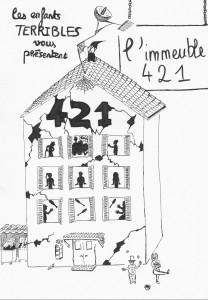 Les enfants
TERRIBLES
vous
présentent
l'immeuble
421
421